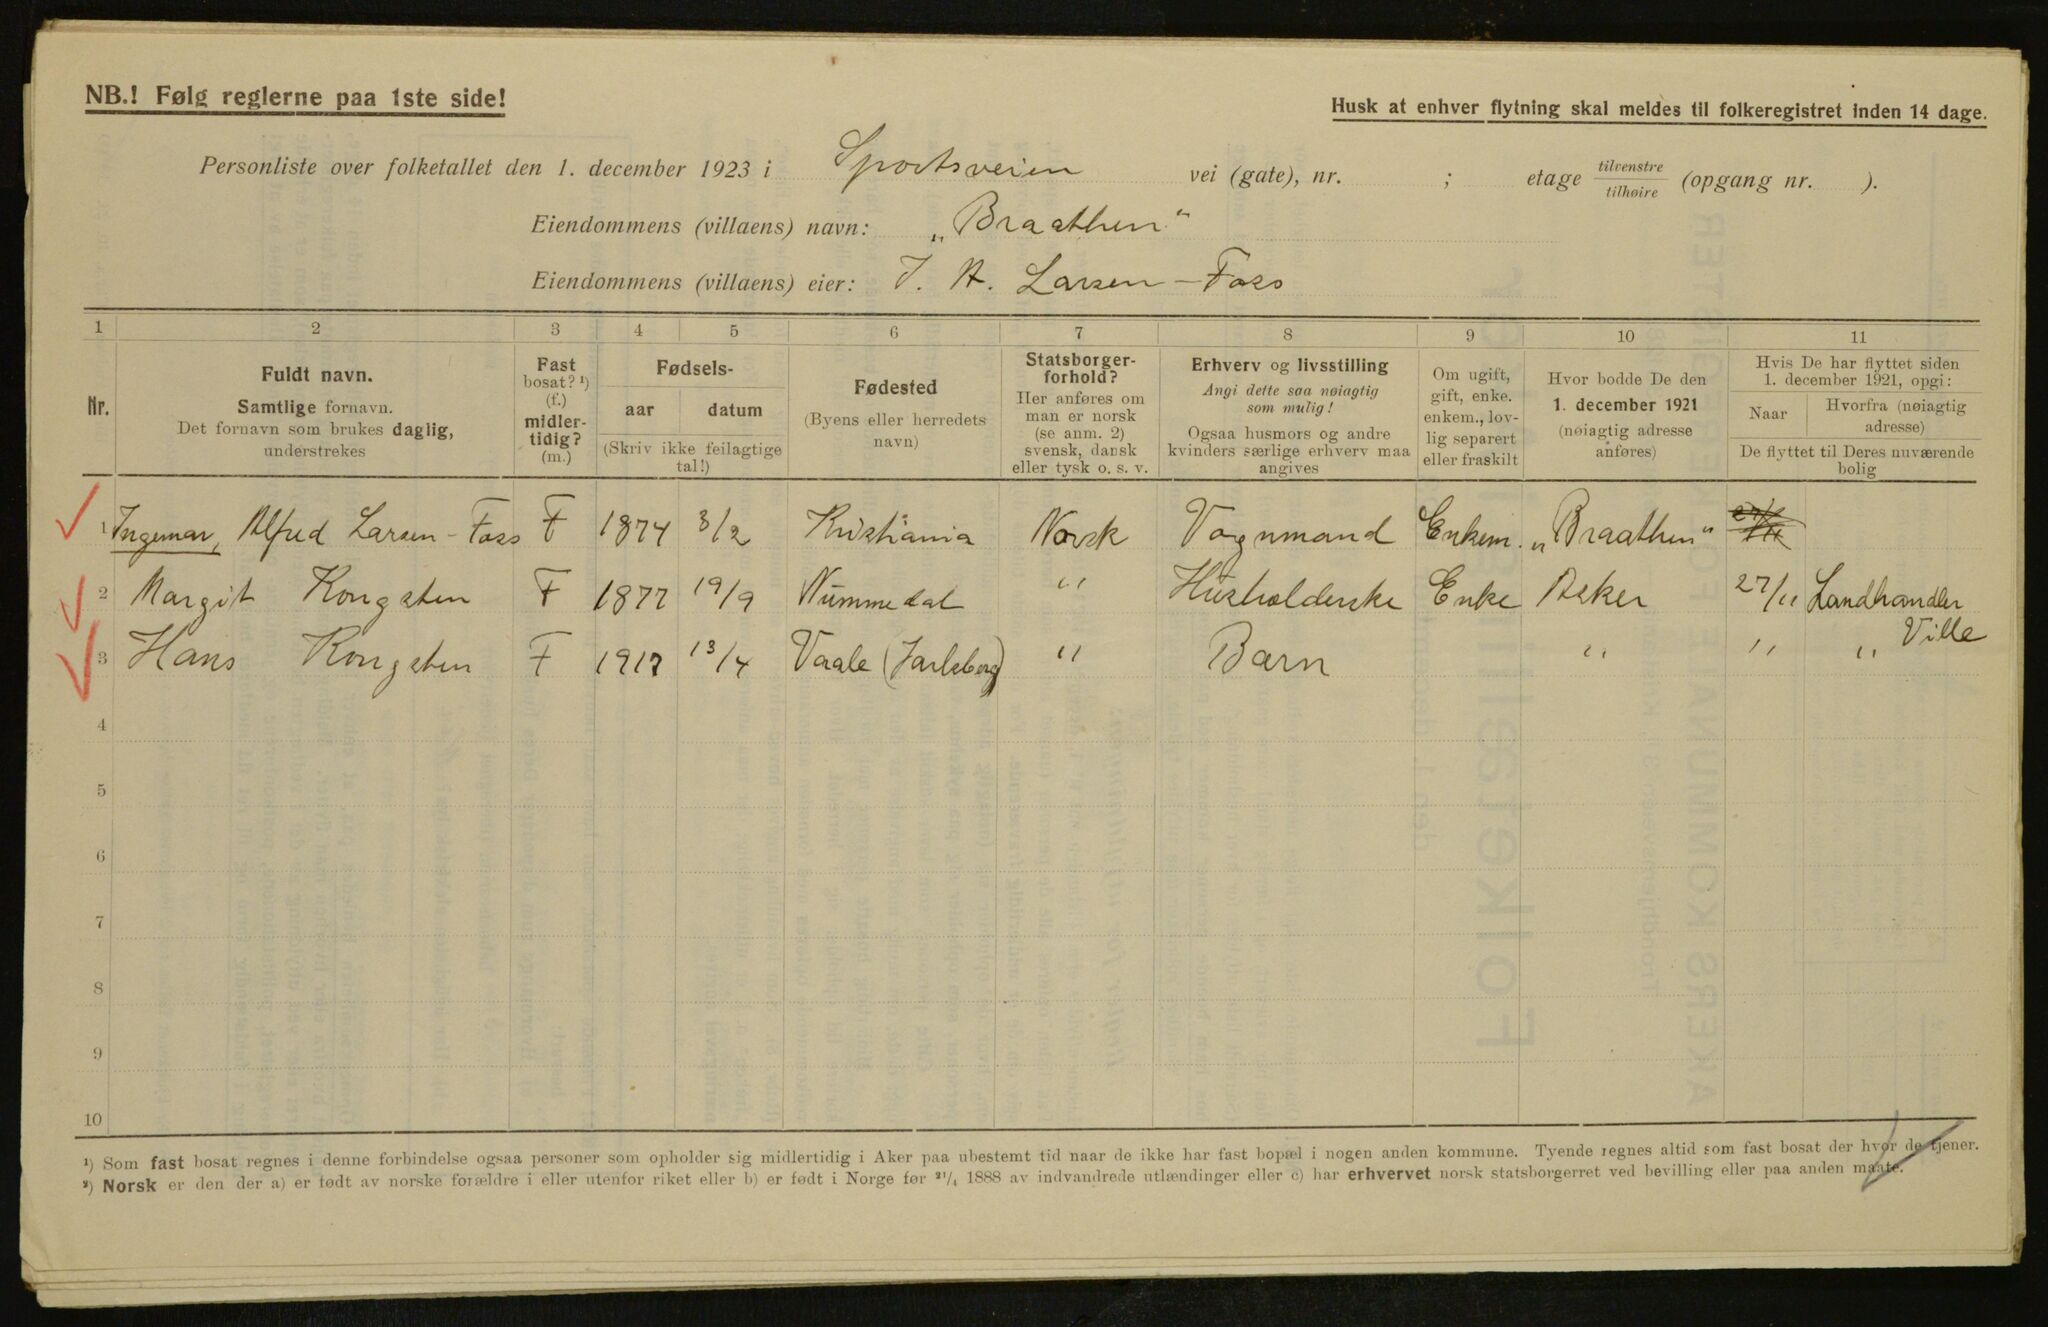 NB.! Følg reglerne paa 1ste side!
Husk at enhver flytning skal meldes til folkeregistret inden 14 dage.
Personliste over folketallet den 1. december 1923 i Sportsveien vei (gate), nr. ; etage tilvenstre / tilhøire (opgang nr. ).
Eiendommens (villaens) navn: „Braathen“
Eiendommens (villaens) eier: I. A. Larsen-Foss
1 2 3 4 5 6 7 8 9 10 11
Nr.
Fuldt navn.
Samtlige fornavn.
Det fornavn som brukes daglig,
understrekes
Fast
bosat? ¹)
(f.)
midler-
tidig?
(m.)
Fødsels-
aar datum
(Skriv ikke feilagtige
tal!)
Fødested
(Byens eller herredets
navn)
Statsborger-
forhold?
Her anføres om
man er norsk
(se anm. 2)
svensk, dansk
eller tysk o. s. v.
Erhverv og livsstilling
Angi dette saa nøiagtig
som mulig!
Ogsaa husmors og andre
kvinders særlige erhverv maa
angives
Om ugift,
gift, enke.
enkem., lov-
lig separert
eller fraskilt
Hvor bodde De den
1. december 1921
(nøiagtig adresse
anføres)
Hvis De har flyttet siden
1. december 1921, opgi:
Naar
Hvorfra (nøiagtig
adresse)
De flyttet til Deres nuværende
bolig
1 Ingemar, Alfred Larsen-Foss F 1874 3/2 Kristiania Norsk Vognmand Enkem. „Braathen“ 27/11
2 Margit Kongsten F 1877 19/9 Nummedal " Husholderske Enke Asker 27/11 Landhandler
3 Hans Kongsten F 1917 13/4 Vaale (Jarlsberg) " Barn " " " Ville
4
5
6
7
8
9
10
¹) Som fast bosat regnes i denne forbindelse ogsaa personer som opholder sig midlertidig i Aker paa ubestemt tid naar de ikke har fast bopæl i nogen anden kommune. Tyende regnes altid som fast bosat der hvor de tjener.
²) Norsk er den der a) er født av norske forældre i eller utenfor riket eller b) er født i Norge før ²¹/₄ 1888 av indvandrede utlændinger eller c) har erhvervet norsk statsborgerret ved bevilling eller paa anden maate.